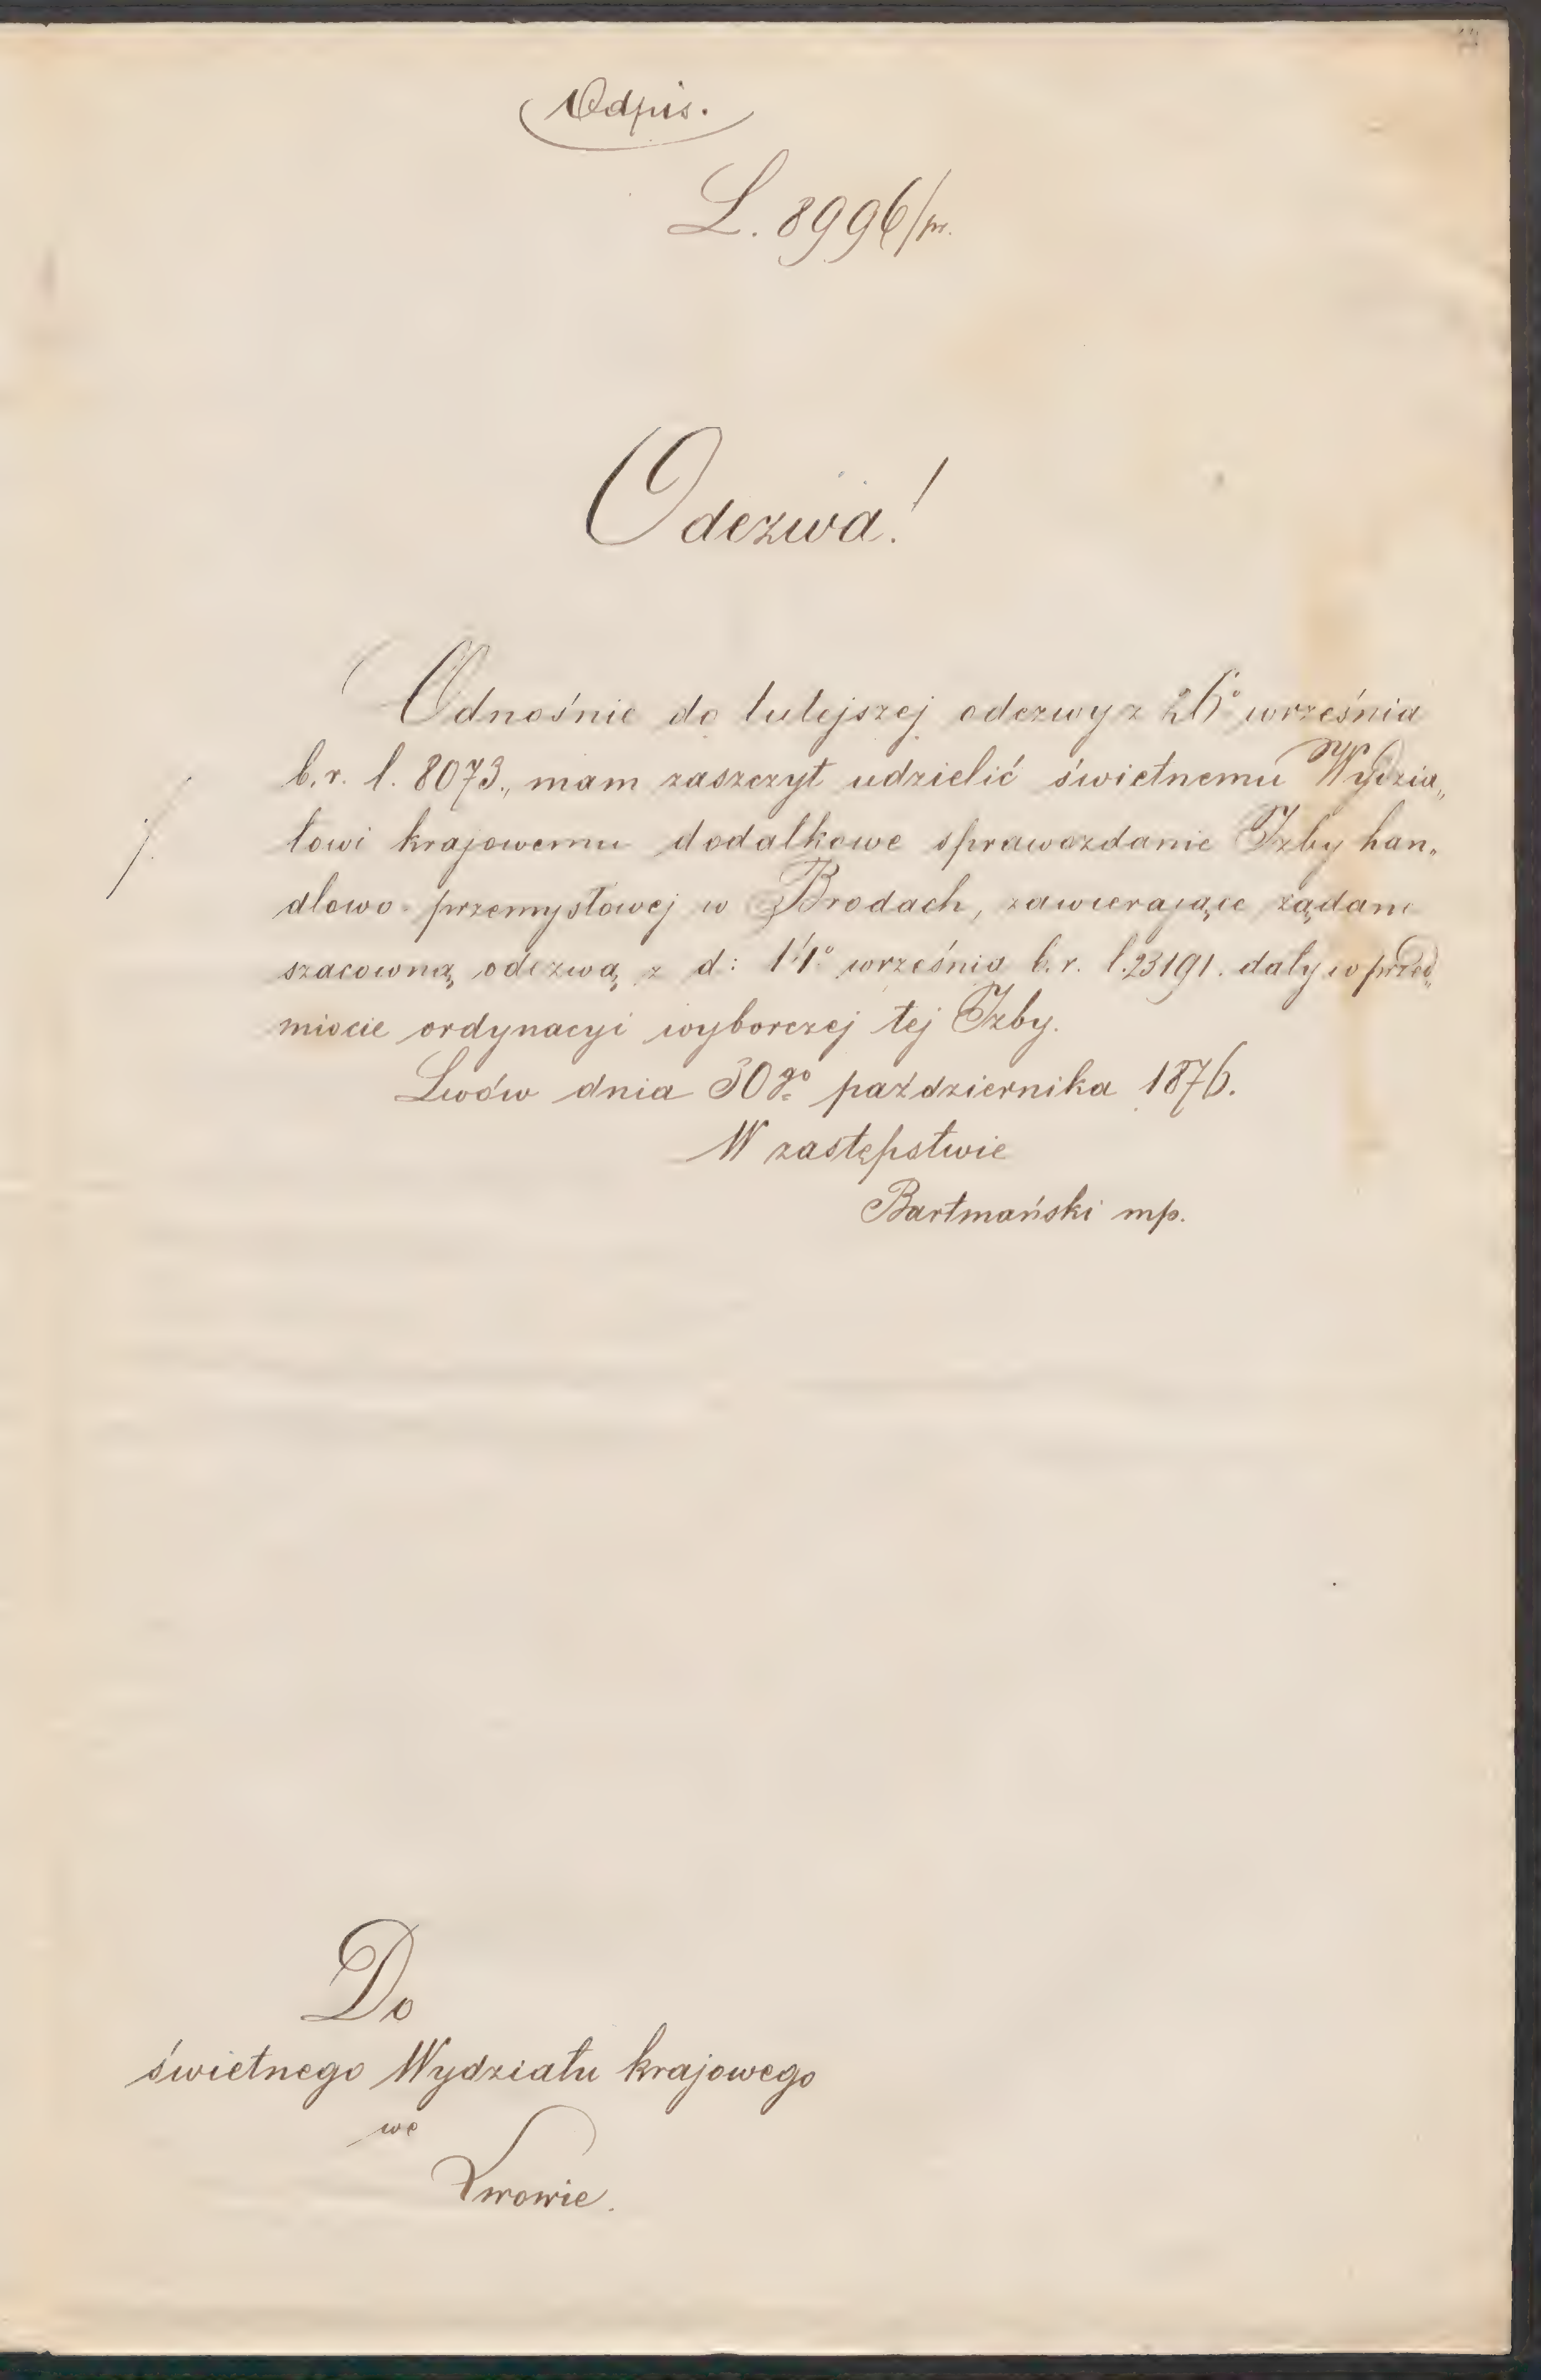 Odpis.
L. 8996/pr.
Odezwa!
Odnośnie do tutejszej odezwy z 26° września
b.r. l. 8073., mam zaszczyt udzielić świetnemu Wydzia„
łowi krajowemu dodatkowe sprawozdanie Izby han„
dlowo-przemysłowej w Brodach, zawierające żądane
szacowną odezwą z d: 11° września b.r. l.23191. daty w przed„
miocie ordynacyi wyborczej tej Izby.
Lwów dnia 30go października 1876.
W zastępstwie
Bartmański mp.
Do
świetnego Wydziału krajowego
we
Lwowie.